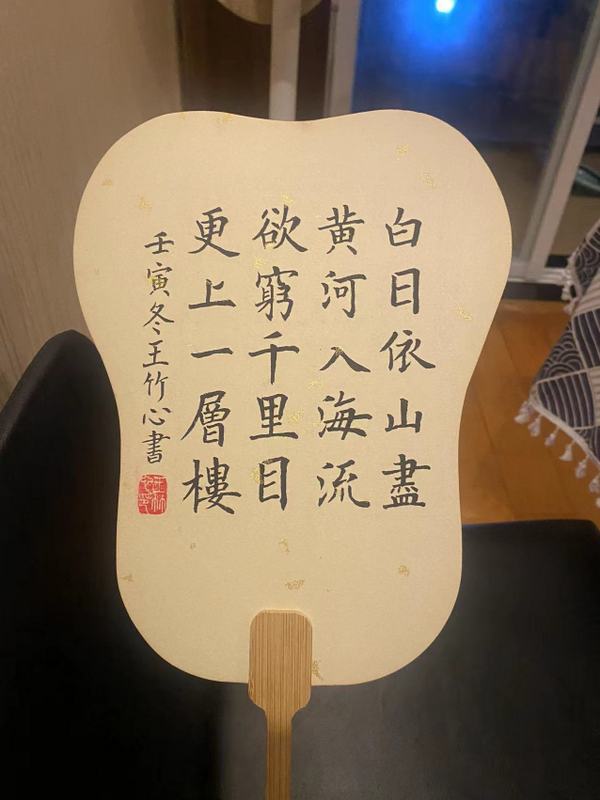 白日依山盡
黄河入海流
欲窮千里目
更上一層樓
壬寅冬王竹心書